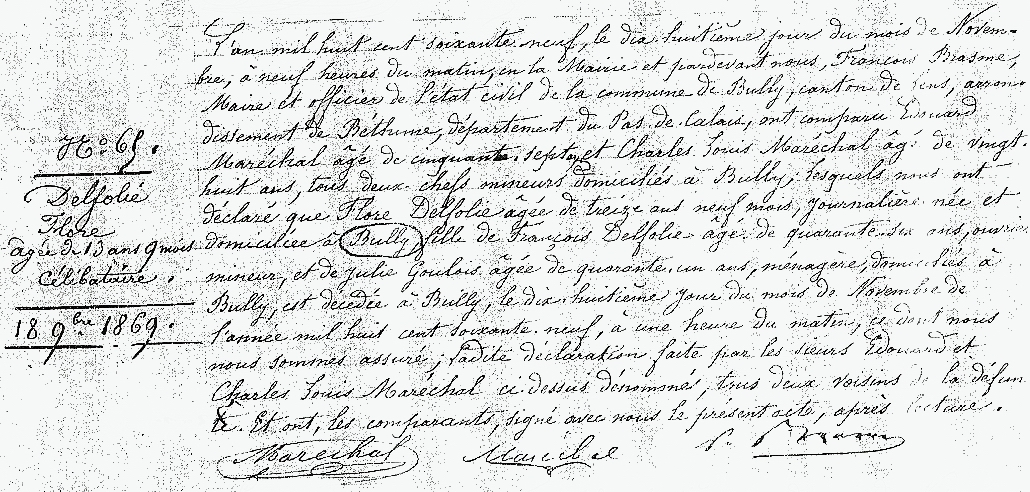 No 65.
Delfolié
Flore
âgée de 13 ans 9 mois
Célibataire.
18 9bre 1869.
L'an mil huit cent soixante neuf, le dix huitième jour du mois de Novem-
bre, à neuf heures du matin, en la Mairie et pardevant nous, François Brasme,
Maire et officier de l'état civil de la commune de Bully, canton de Lens, arron-
dissement de Béthune, département du Pas-de-Calais, ont comparu Edouard
Maréchal âgé de cinquante-sept, et Charles Louis Maréchal âgé de vingt-
huit ans, tous deux chefs mineurs domiciliés à Bully, lesquels nous ont
déclaré que Flore Delfolie âgée de treize ans neuf mois, journalière née et
domiciliée à Bully fille de François Delfolie âgé de quarante-six ans, ouvrier
mineur, et de Julie Goulois âgée de quarante-un ans, ménagère, domiciliés à
Bully, est décédée à Bully, le dix huitième jour du mois de Novembre de
l'année mil huit cent soixante-neuf, à une heure du matin, ce dont nous
nous sommes assuré; ladite déclaration faite par les sieurs Edouard et
Charles Louis Maréchal ci-dessus dénommés, tous deux voisins de la défun
te. Et ont, les comparants, signé avec nous le présent acte, après lecture.
Maréchal Maréchal